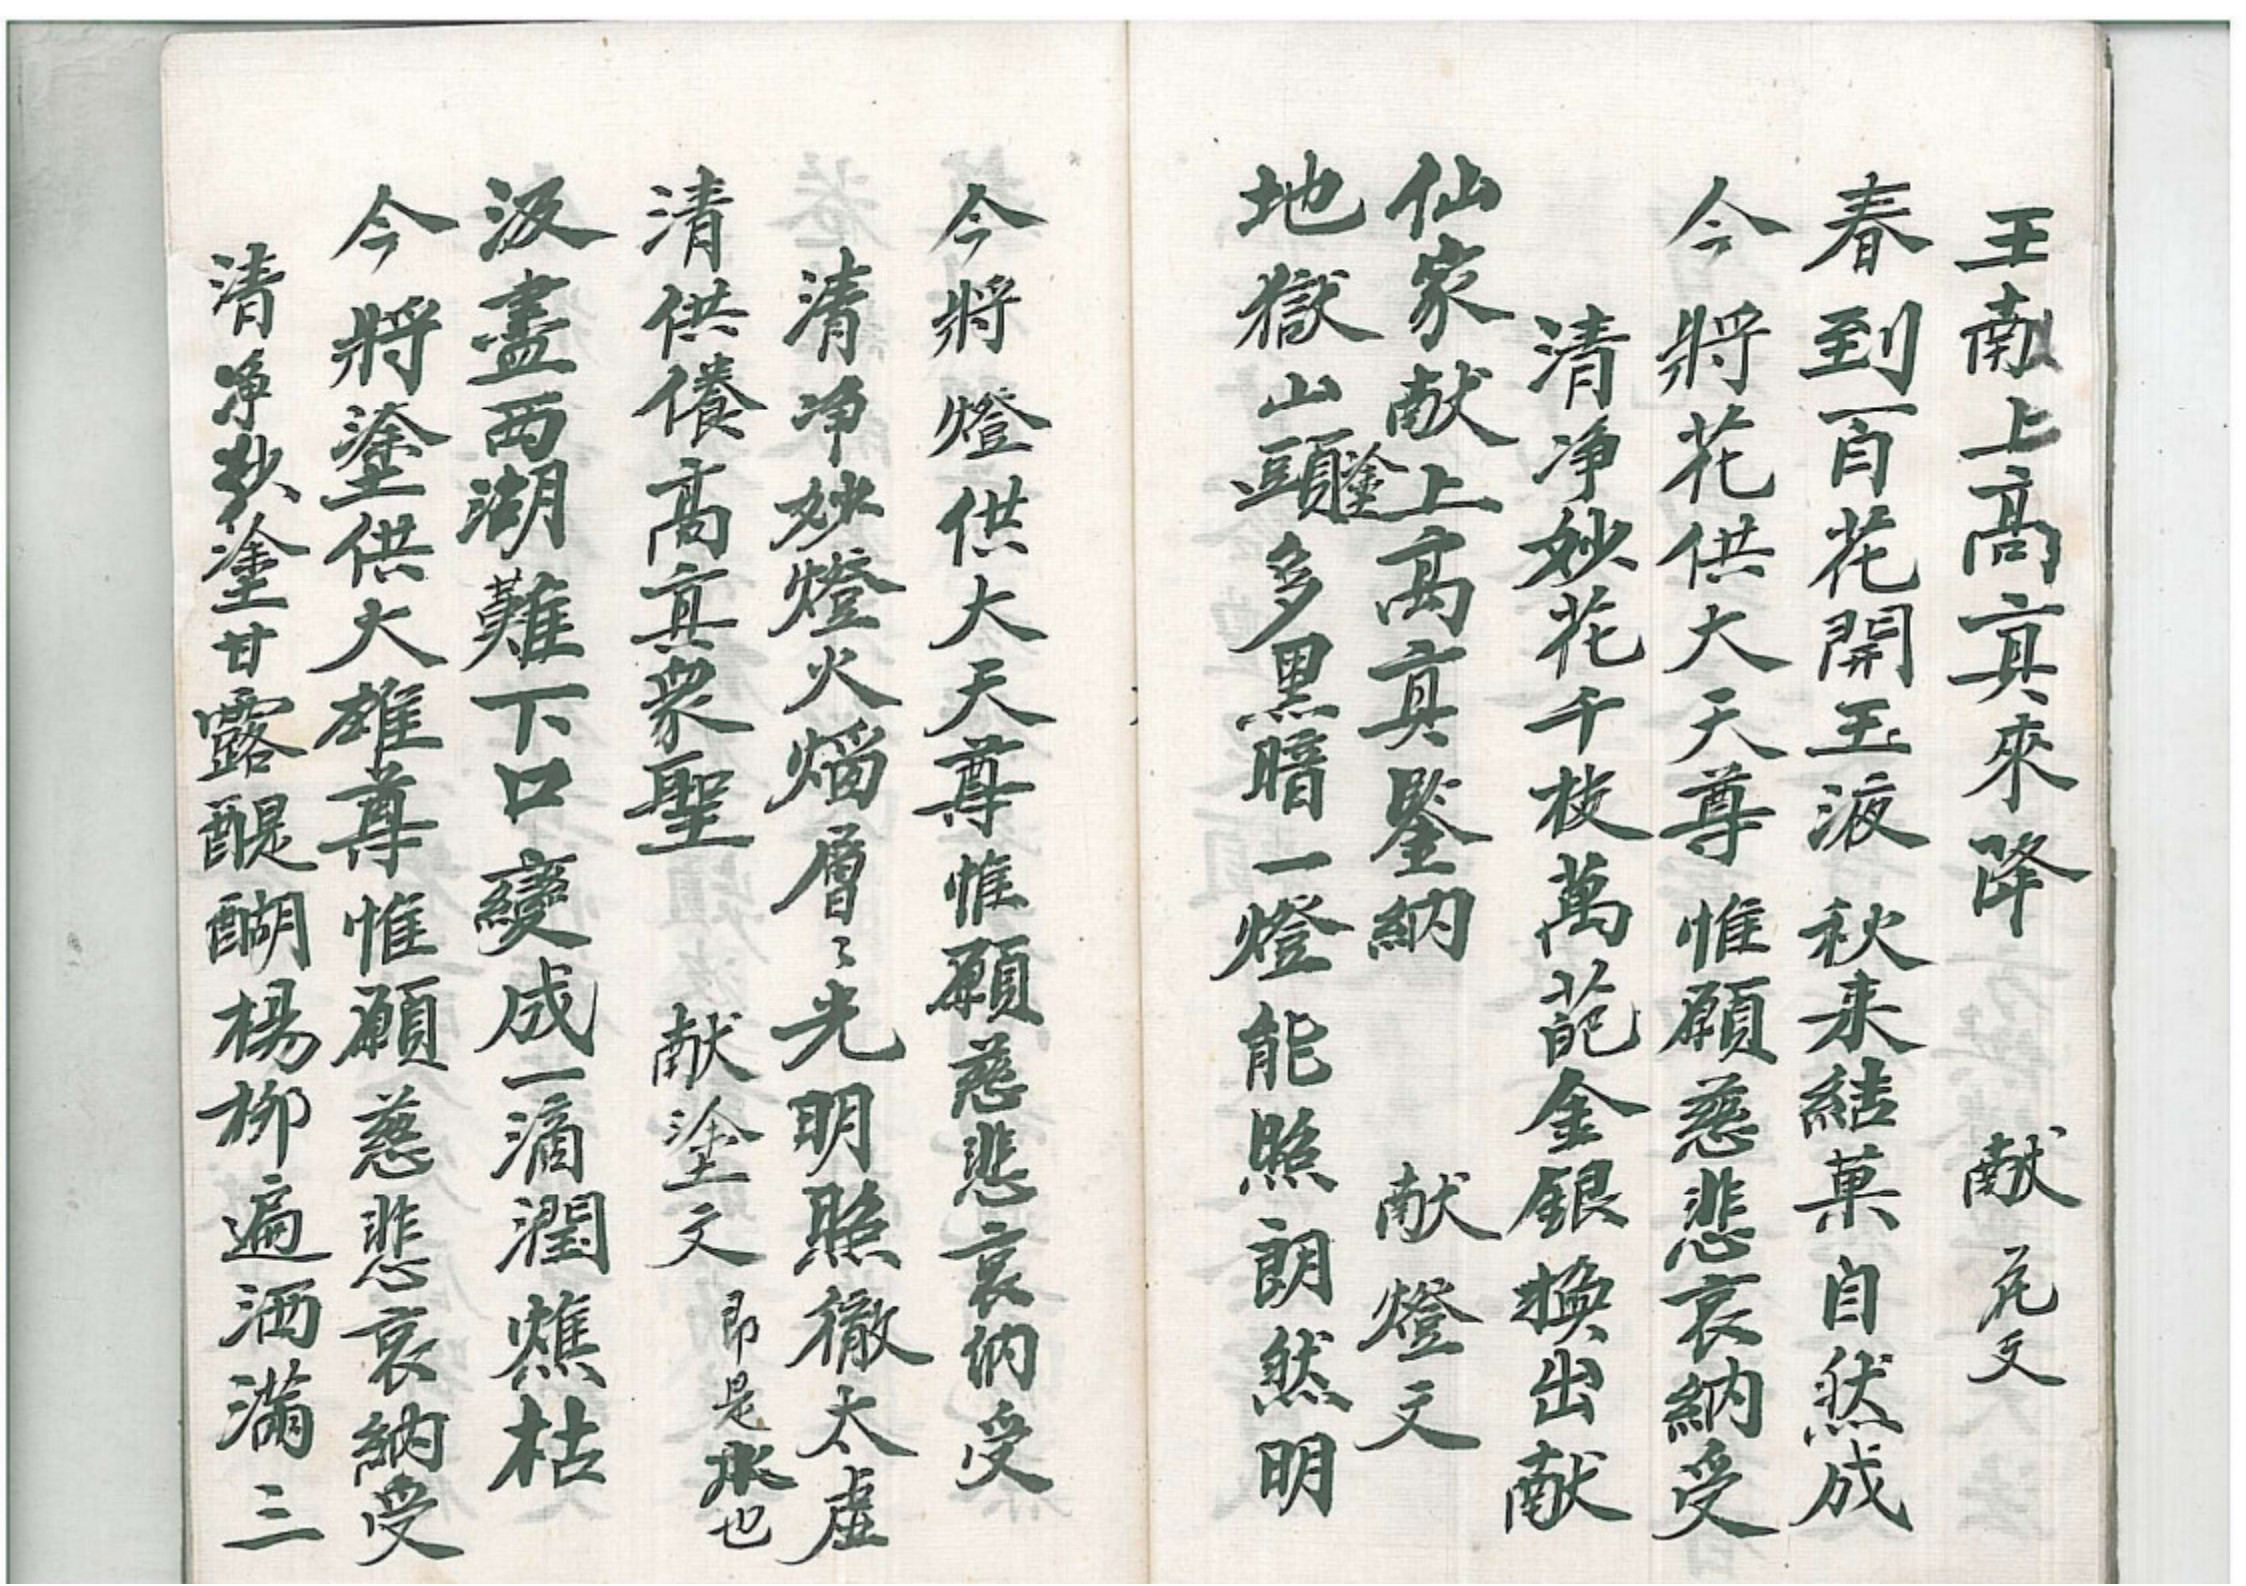 王献上高真來降　献花文
春到百花開玉液秋来結菓自然成
今將花供大天尊惟願慈悲哀納受
清净妙花千枝萬葩金銀換出献
仙家献上高真鑒納　献燈文
地獄山頭塗多黑暗一燈能照朗然明
今將燈供大天尊惟願慈悲哀納受
清净妙燈火熖層々光明照徹太虛
清供養高真衆聖　献塗文即是水也
汲盡西湖難下口變成一滴潤燋枯
今將塗供大雄尊惟願慈悲哀納受
清净妙塗甘露醍醐楊柳遍洒滿三